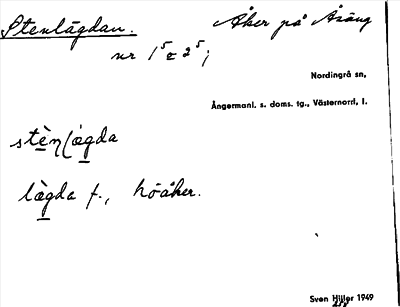 Stenlägdan. Åker på Åsäng
nr 1⁵ o 2⁵;
Nordingrå sn,
Ångermanl. s. doms. tg., Västernorrl, l.
stèn(lægda
lægda f., höåker.
Sven Hiller 1949